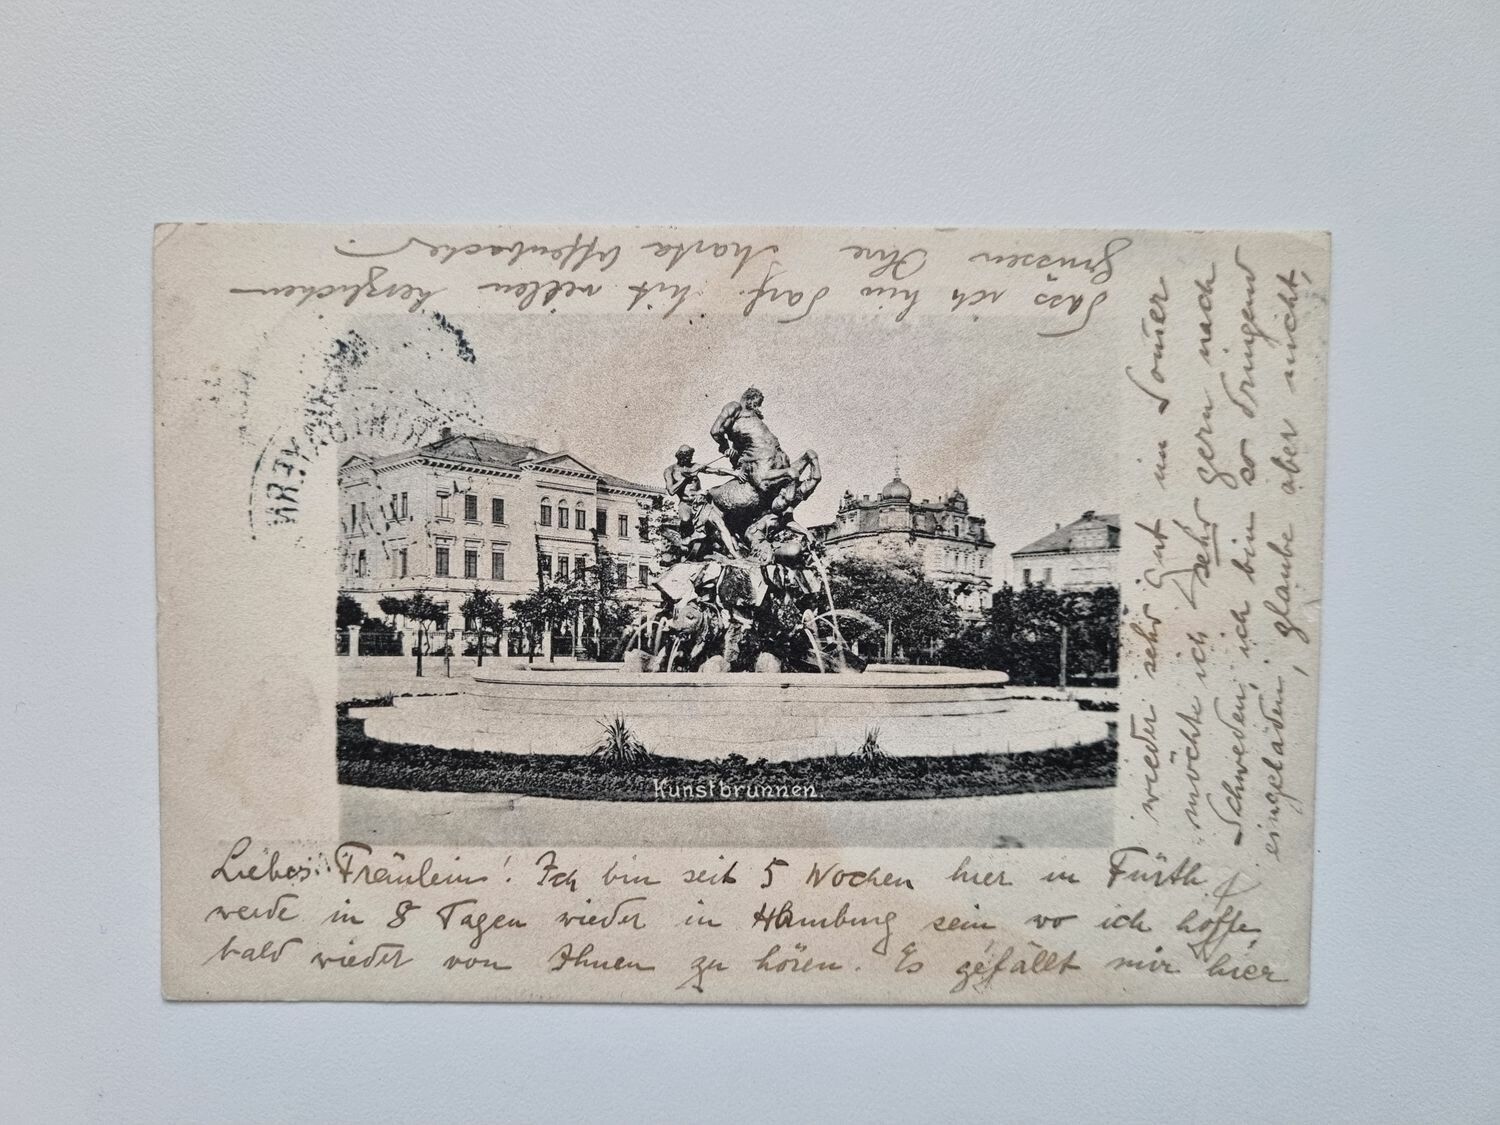 Kunstbrunnen.
Liebes Fräulein! Ich bin seit 5 Wochen hier in Fürth,
werde in 8 Tagen wieder in Hamburg sein, wo ich hoffe,
bald wieder von Ihnen zu hören. Es gefällt mir hier
wieder sehr gut im Somer
möchte ich sehr gern nach
Schweden, ich bin so dringend
eingeladen, glaube aber nicht,
dass ich hin darf. Mit vielen herzlichen
Grüssen Ihre Martha Offenbacher.